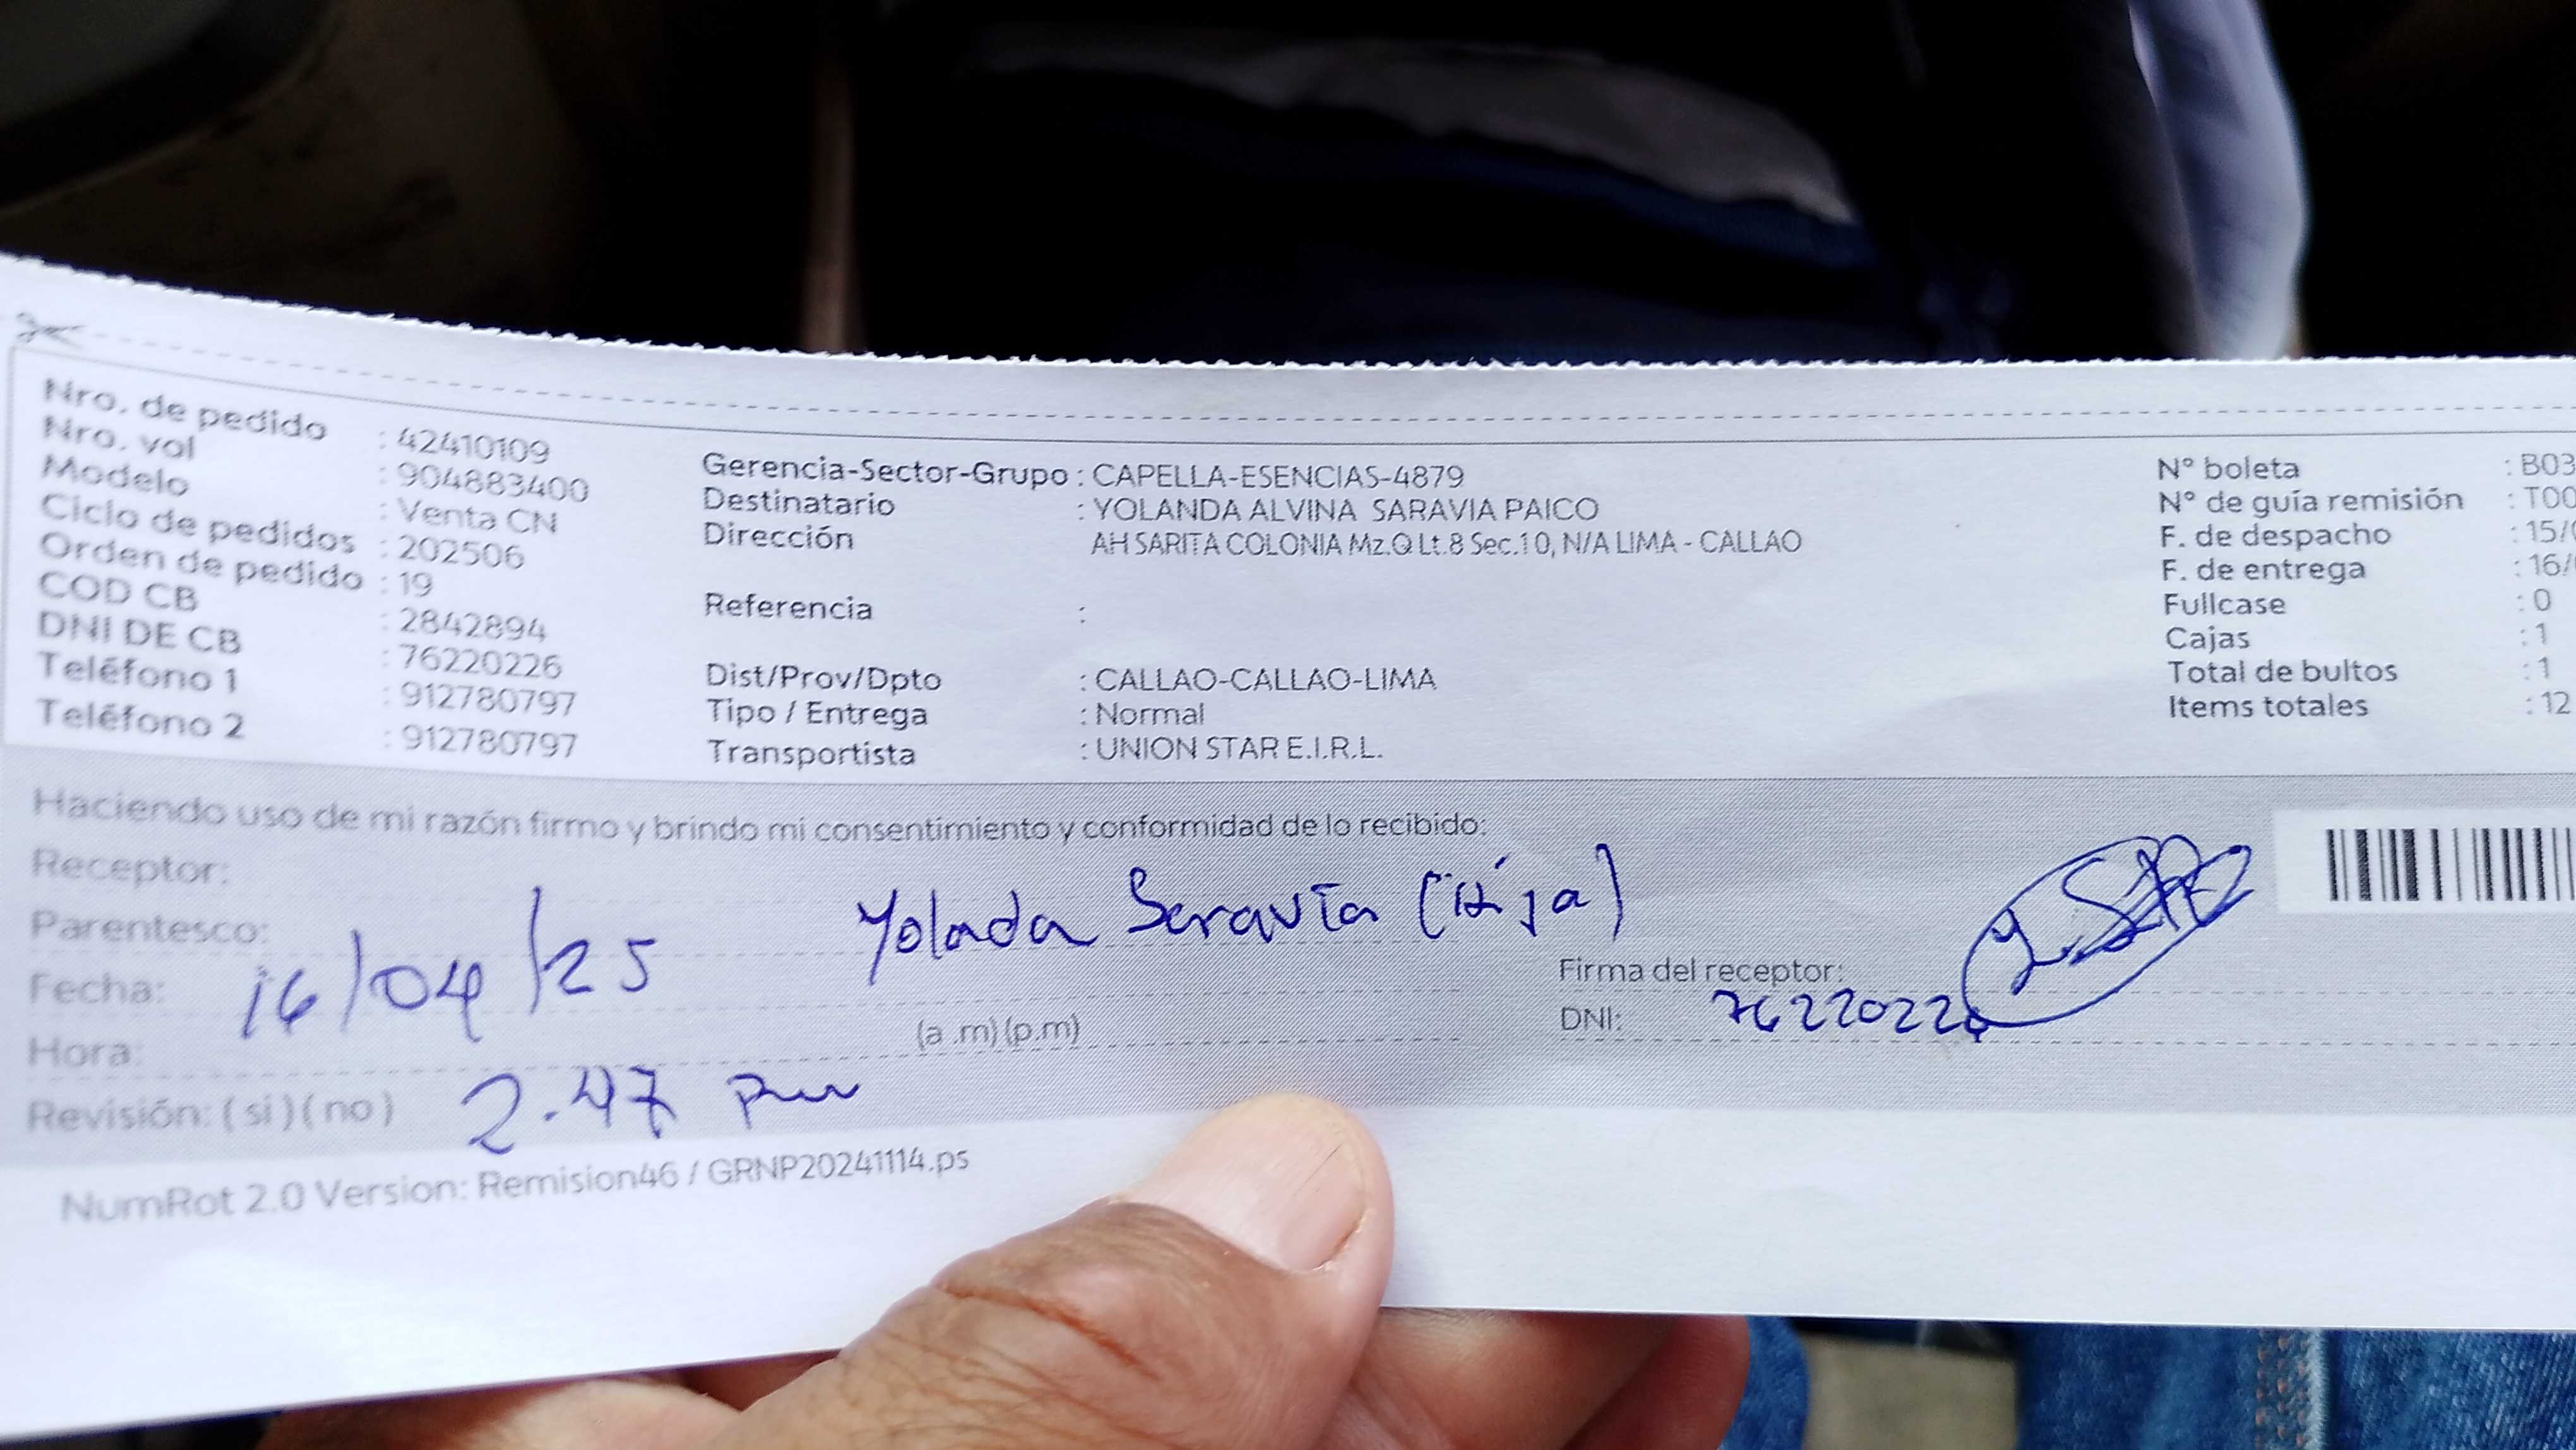 Nro. de pedido : 42410109
Nro. vol : 904883400
Modelo : Venta CN
Ciclo de pedidos : 202506
Orden de pedido : 19
COD CB : 2842894
DNI DE CB : 76220226
Teléfono 1 : 912780797
Teléfono 2 : 912780797
Gerencia-Sector-Grupo : CAPELLA-ESENCIAS-4879
Destinatario : YOLANDA ALVINA SARAVIA PAICO
Dirección AH SARITA COLONIA Mz.Q Lt.8 Sec.10, N/A LIMA - CALLAO
Referencia :
Dist/Prov/Dpto : CALLAO-CALLAO-LIMA
Tipo / Entrega : Normal
Transportista : UNION STAR E.I.R.L.
N° boleta : B03
N° de guía remisión : T00
F. de despacho : 15/
F. de entrega : 16/
Fullcase : 0
Cajas : 1
Total de bultos : 1
Items totales : 12
Haciendo uso de mi razón firmo y brindo mi consentimiento y conformidad de lo recibido:
Receptor:
Parentesco: Yolada Saravia (Hija)
Fecha: 16/04/25
Hora: (a .m) (p.m)
Revisión: ( si ) ( no ) 2.47 pm
Firma del receptor:
DNI: 76220226
NumRot 2.0 Version: Remision46 / GRNP20241114.ps